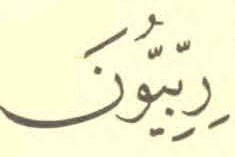 رِبِّيُّونَ